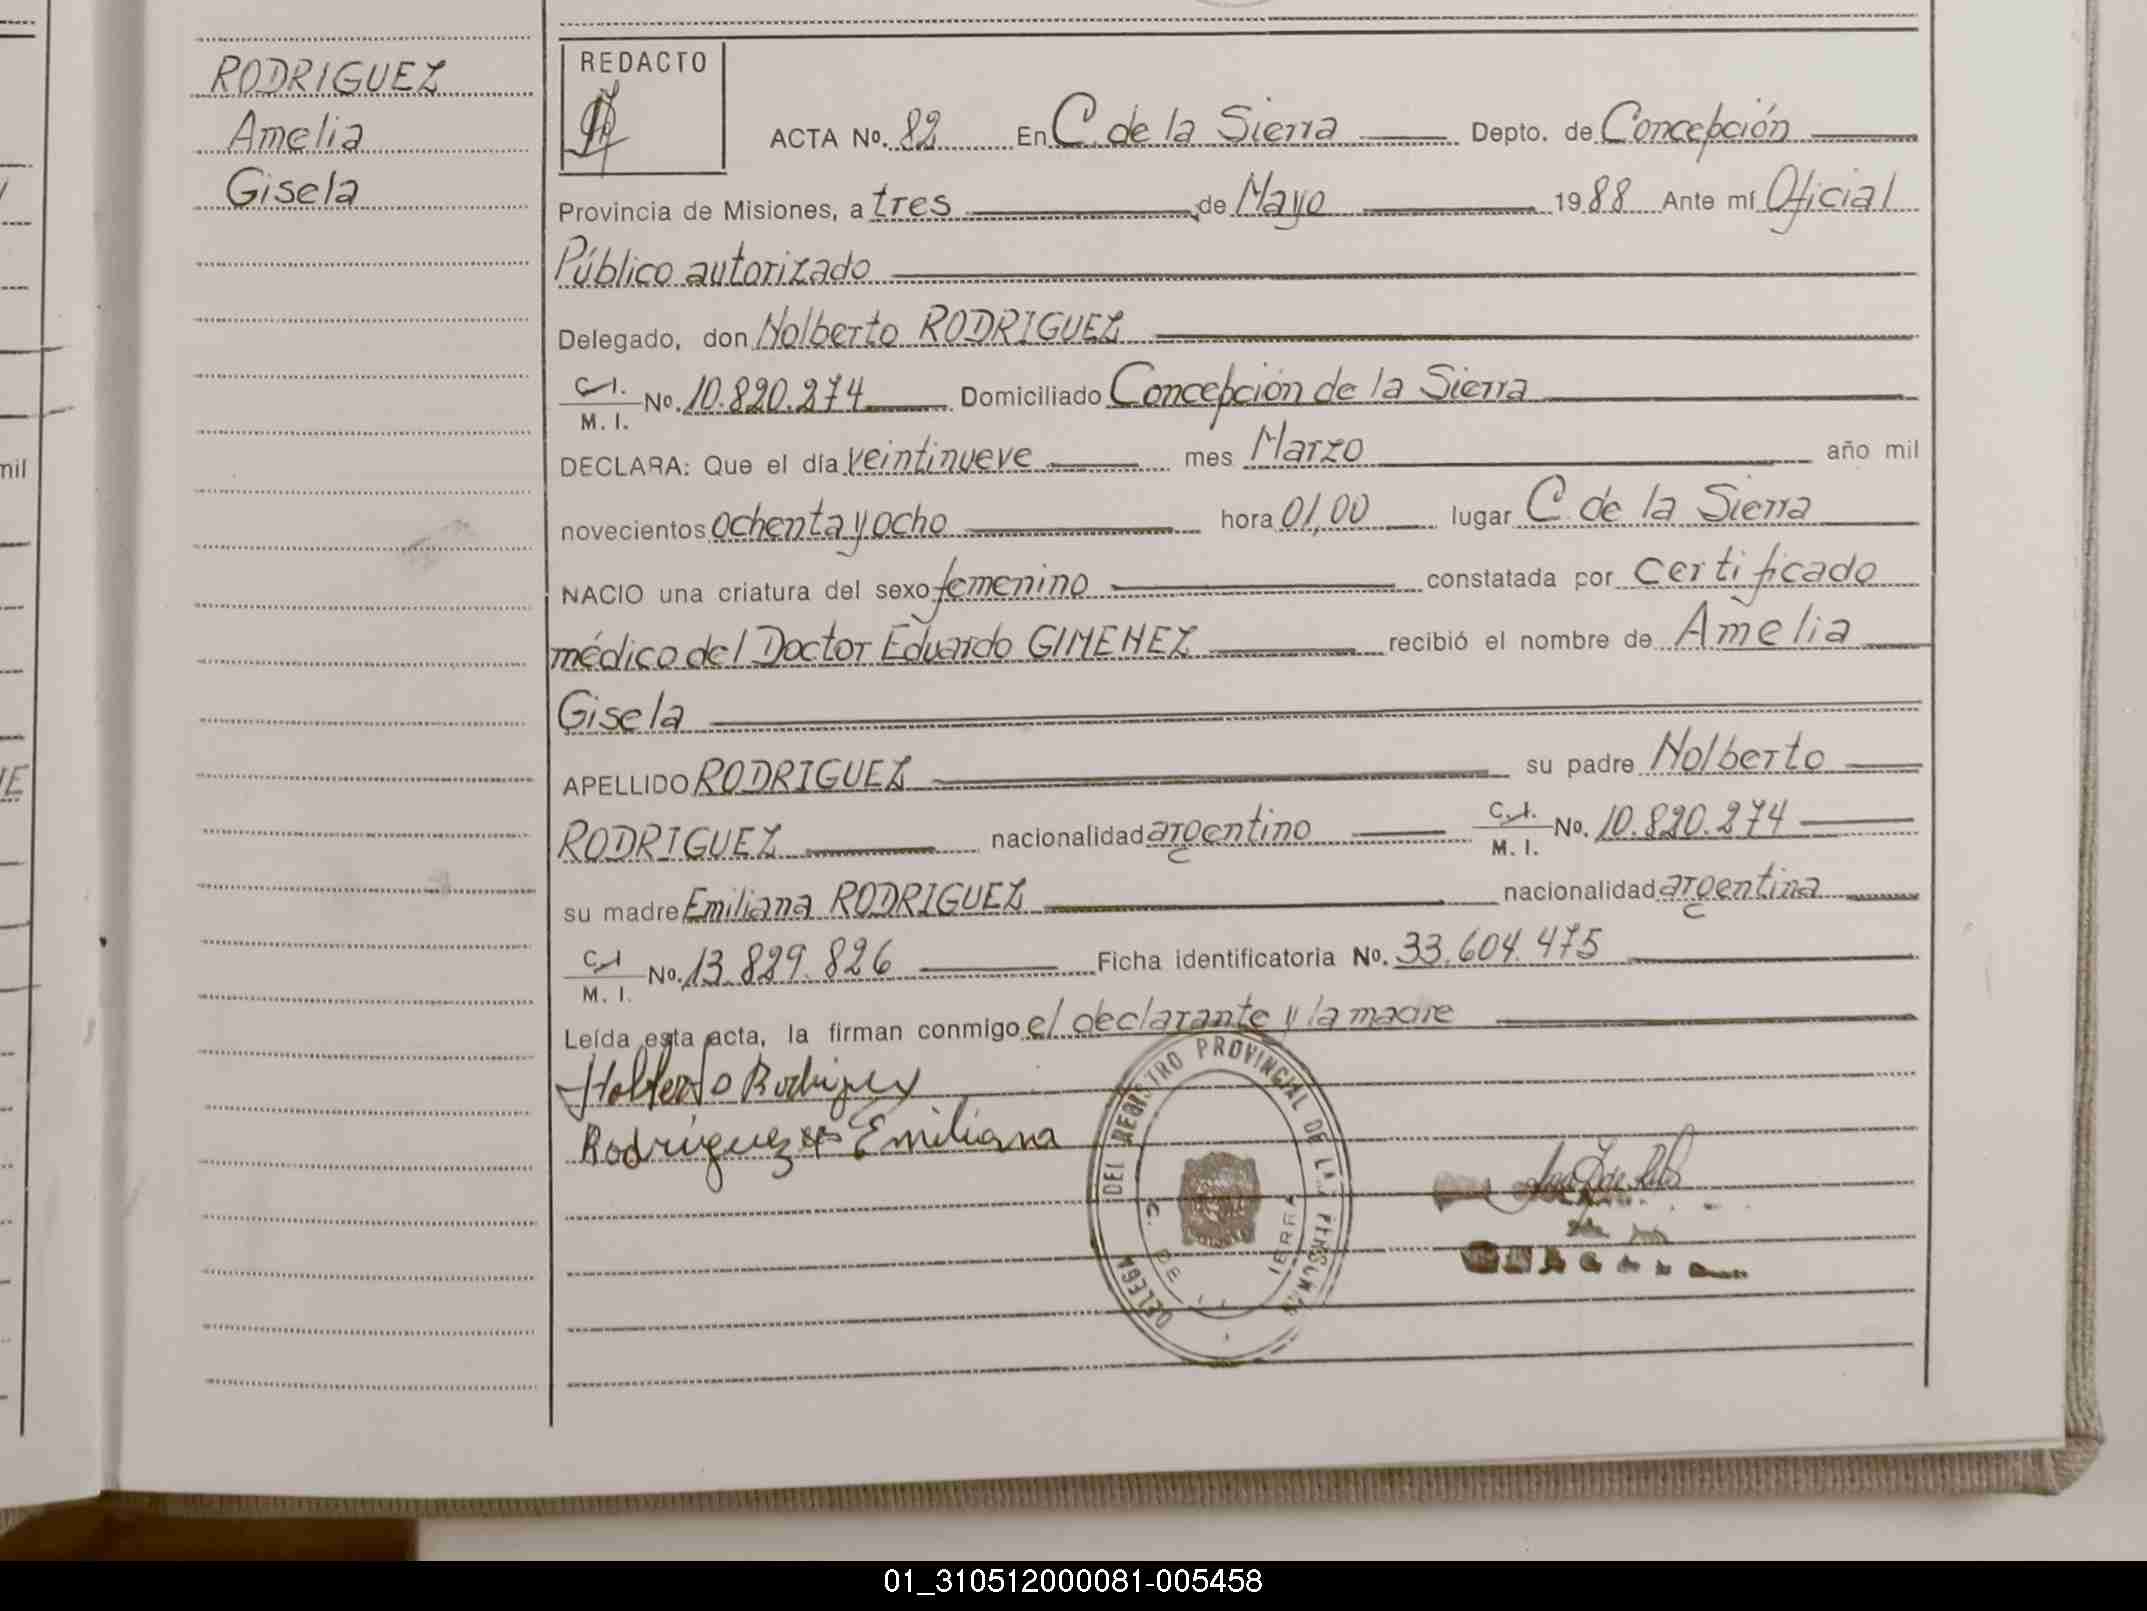 RODRIGUEZ
Amelia
Gisela
REDACTO
ACTA No. 82 En C. de la Sierra Depto. de Concepción
Provincia de Misiones, a tres de Mayo 1988 Ante mí Oficial
Público autorizado
Delegado, don Nolberto RODRIGUEZ
C.I. M. I. No. 10.820.274 Domiciliado Concepción de la Sierra
DECLARA: Que el día veintinueve mes Marzo año mil
novecientos ochenta y ocho hora 01,00 lugar C. de la Sierra
NACIO una criatura del sexo femenino constatada por certificado
médico del Doctor Eduardo GIMENEZ recibió el nombre de Amelia
Gisela
APELLIDO RODRIGUEZ su padre Nolberto
RODRIGUEZ nacionalidad argentino C.I. M. I. No. 10.820.274
su madre Emiliana RODRIGUEZ nacionalidad argentina
C.I M. I. No. 13.829.826 Ficha identificatoria No. 33.604.475
Leída esta acta, la firman conmigo el declarante y la madre
Nolberto Rodriguez
Rodríguez Emiliana
DEL REGISTRO PROVINCIAL DE LAS PERSONAS
C. DE
IERRA
DELEGA
mil
01_310512000081-005458